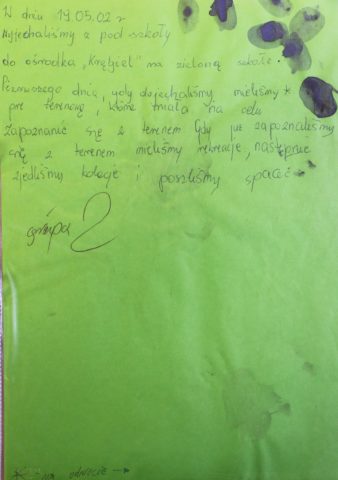 W dniu 19.05.02 r
wyjechaliśmy z pod szkoły
do ośrodka „Kręgiel" na zieloną szkołe.
Pierwszego dnia, gdy dojechaliśmy mieliśmy *
grę terenową, które miała na celu
Zapoznanie się z terenem Gdy już zapoznaliśmy
się z terenem mieliśmy rekreacje, następnie
zjedliśmy kolacje i poszliśmy spać
grupa 2
* na odwrocie →